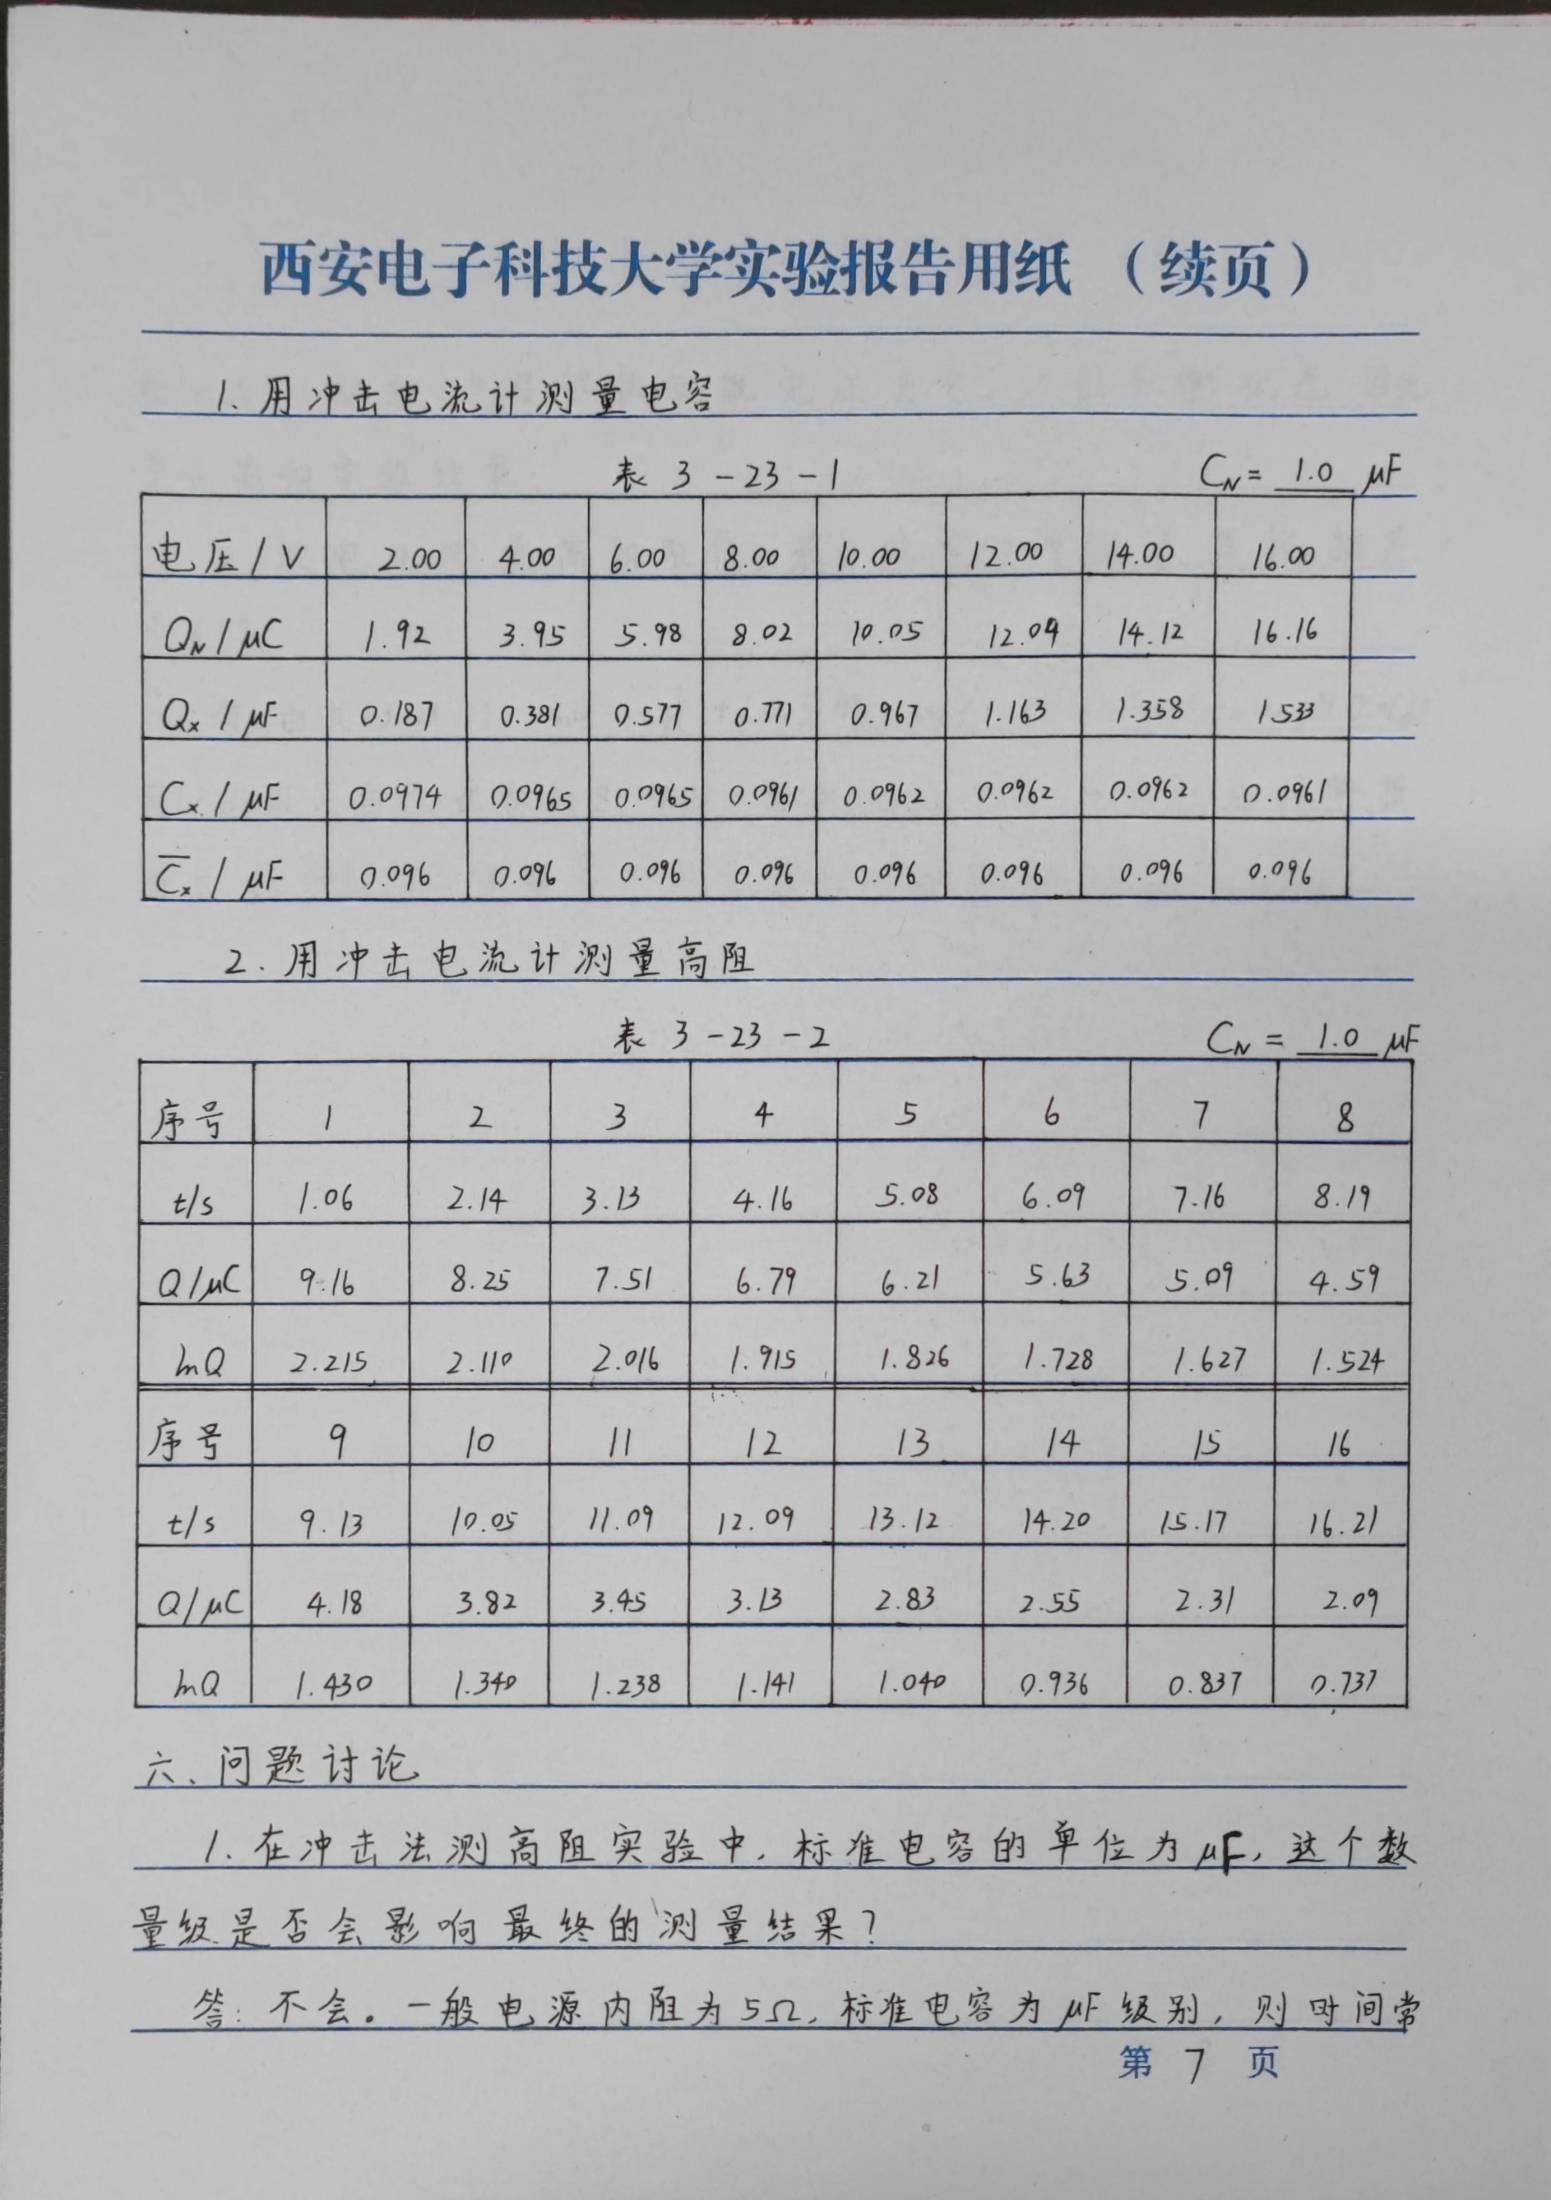 西安电子科技大学实验报告用纸 （续页）
1. 用冲击电流计测量电容
表 3-23-1 C_N = 1.0 μF
电压/V 2.00 4.00 6.00 8.00 10.00 12.00 14.00 16.00
Q_N/μC 1.92 3.95 5.98 8.02 10.05 12.09 14.12 16.16
Q_x/μF 0.187 0.381 0.577 0.771 0.967 1.163 1.358 1.533
C_x/μF 0.0974 0.0965 0.0965 0.0961 0.0962 0.0962 0.0962 0.0961
C̅_x/μF 0.096 0.096 0.096 0.096 0.096 0.096 0.096 0.096
2. 用冲击电流计测量高阻
表 3-23-2 C_N = 1.0 μF
序号 1 2 3 4 5 6 7 8
t/s 1.06 2.14 3.13 4.16 5.08 6.09 7.16 8.19
Q/μC 9.16 8.25 7.51 6.79 6.21 5.63 5.09 4.59
lnQ 2.215 2.110 2.016 1.915 1.826 1.728 1.627 1.524
序号 9 10 11 12 13 14 15 16
t/s 9.13 10.05 11.09 12.09 13.12 14.20 15.17 16.21
Q/μC 4.18 3.82 3.45 3.13 2.83 2.55 2.31 2.09
lnQ 1.430 1.340 1.238 1.141 1.040 0.936 0.837 0.737
六、问题讨论
1. 在冲击法测高阻实验中，标准电容的单位为μF，这个数
量级是否会影响最终的测量结果？
答：不会。一般电源内阻为5Ω，标准电容为μF级别，则时间常
第 7 页